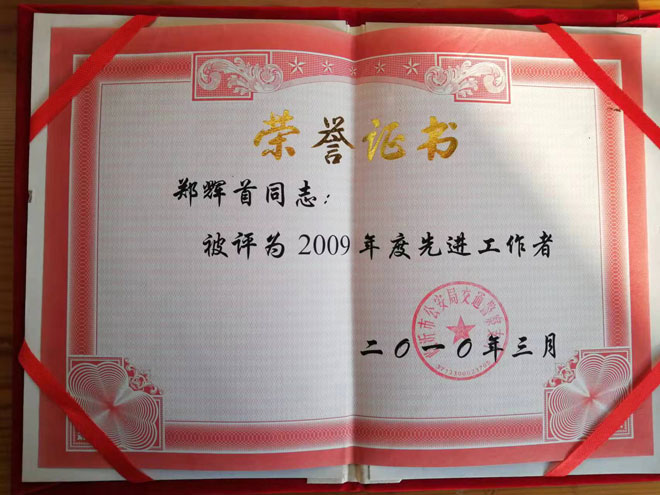 荣誉证书
郑辉首同志：
被评为2009年度先进工作者
沂市公安局交通警察支
二〇一〇年三月